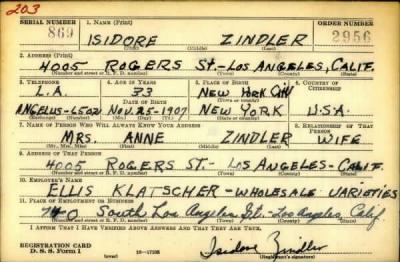 203
SERIAL NUMBER 1. NAME (Print) ORDER NUMBER
869 ISIDORE ZINDLER 2956
(First) (Middle) (Last)
2. ADDRESS (Print)
4005 ROGERS ST.-LOS ANGELES, CALIF.
(Number and street or R. F. D. number) (Town) (County) (State)
3. TELEPHONE 4. AGE IN YEARS 5. PLACE OF BIRTH 6. COUNTRY OF CITIZENSHIP
L.A. 33 NEW YORK CITY
(Exchange) DATE OF BIRTH (Town or county)
ANGELUS-1502 NOV. 25-1907 NEW YORK U.S.A.
(Number) (Mo.) (Day) (Yr.) (State or country)
7. NAME OF PERSON WHO WILL ALWAYS KNOW YOUR ADDRESS 8. RELATIONSHIP OF THAT PERSON
MRS. ANNE ZINDLER WIFE
(Mr., Mrs., Miss) (First) (Middle) (Last)
9. ADDRESS OF THAT PERSON
4005 ROGERS ST- LOS ANGELES-CALIF.
(Number and street or R. F. D. number) (Town) (County) (State)
10. EMPLOYER'S NAME
ELLIS KLATSCHER-WHOLESALE VARIETIES
11. PLACE OF EMPLOYMENT OR BUSINESS
740 South Los Angeles St.-Los Angeles, Calif.
(Number and street or R. F. D. number) (Town) (County) (State)
I AFFIRM THAT I HAVE VERIFIED ABOVE ANSWERS AND THAT THEY ARE TRUE.
REGISTRATION CARD
D. S. S. Form 1 16-17105 Isidore Zindler
(Registrant's signature)